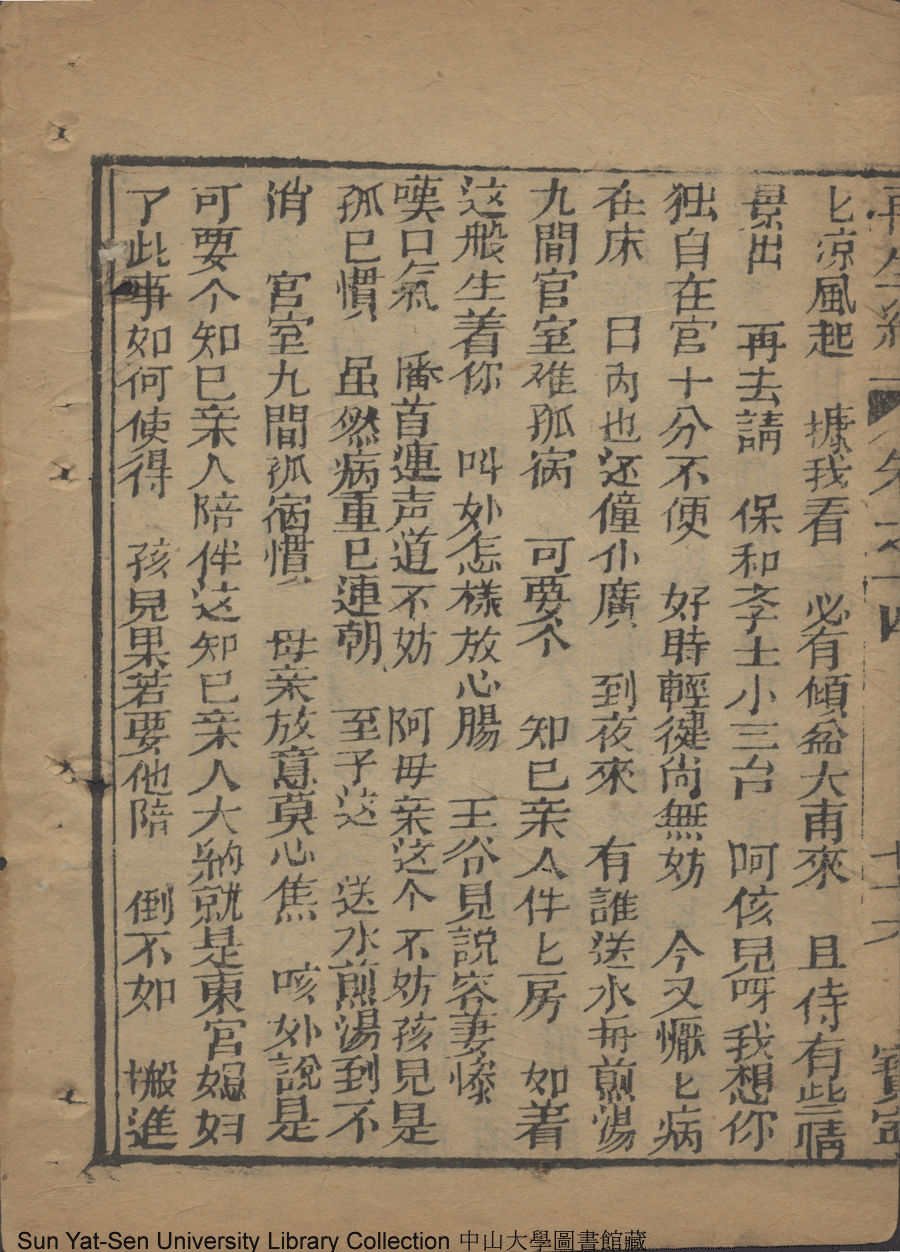 再生緣 卷之四 十六 寳寧
匕凉風起 據我看 必有傾盆大雨來 且侍有些情
景出 再去請 保和孝士小三台 呵侅兒呀我想你
独自在宫十分不便 好時輕健尚無妨 今又懨匕病
在床 日內也还僮仆廣 到夜來 有誰送水再煎湯
九間官室难孤宿 可要个 知已亲人伴匕房 如着
这般生着你 叫奴怎樣放心腸 王谷見説容妻慘
嘆口氣 皤首連声道不妨 阿毋亲这个不妨孩見是
孤已慣 虽然病重已連朝 至于这 送水煎湯到不
消 官室九間孤宿慣 母亲放意莫心焦 咳奴說是
可要个知已亲人陪伴这知已亲人大約就是東官媳妇
了此事如何使得 孩見果若要他陪 倒不如 搬進
Sun Yat-Sen University Library Collection 中山大學圖書館藏